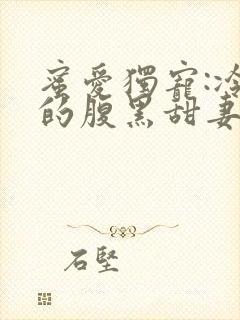 蜜愛獨寵:冷
的腹黑甜妻
石堅